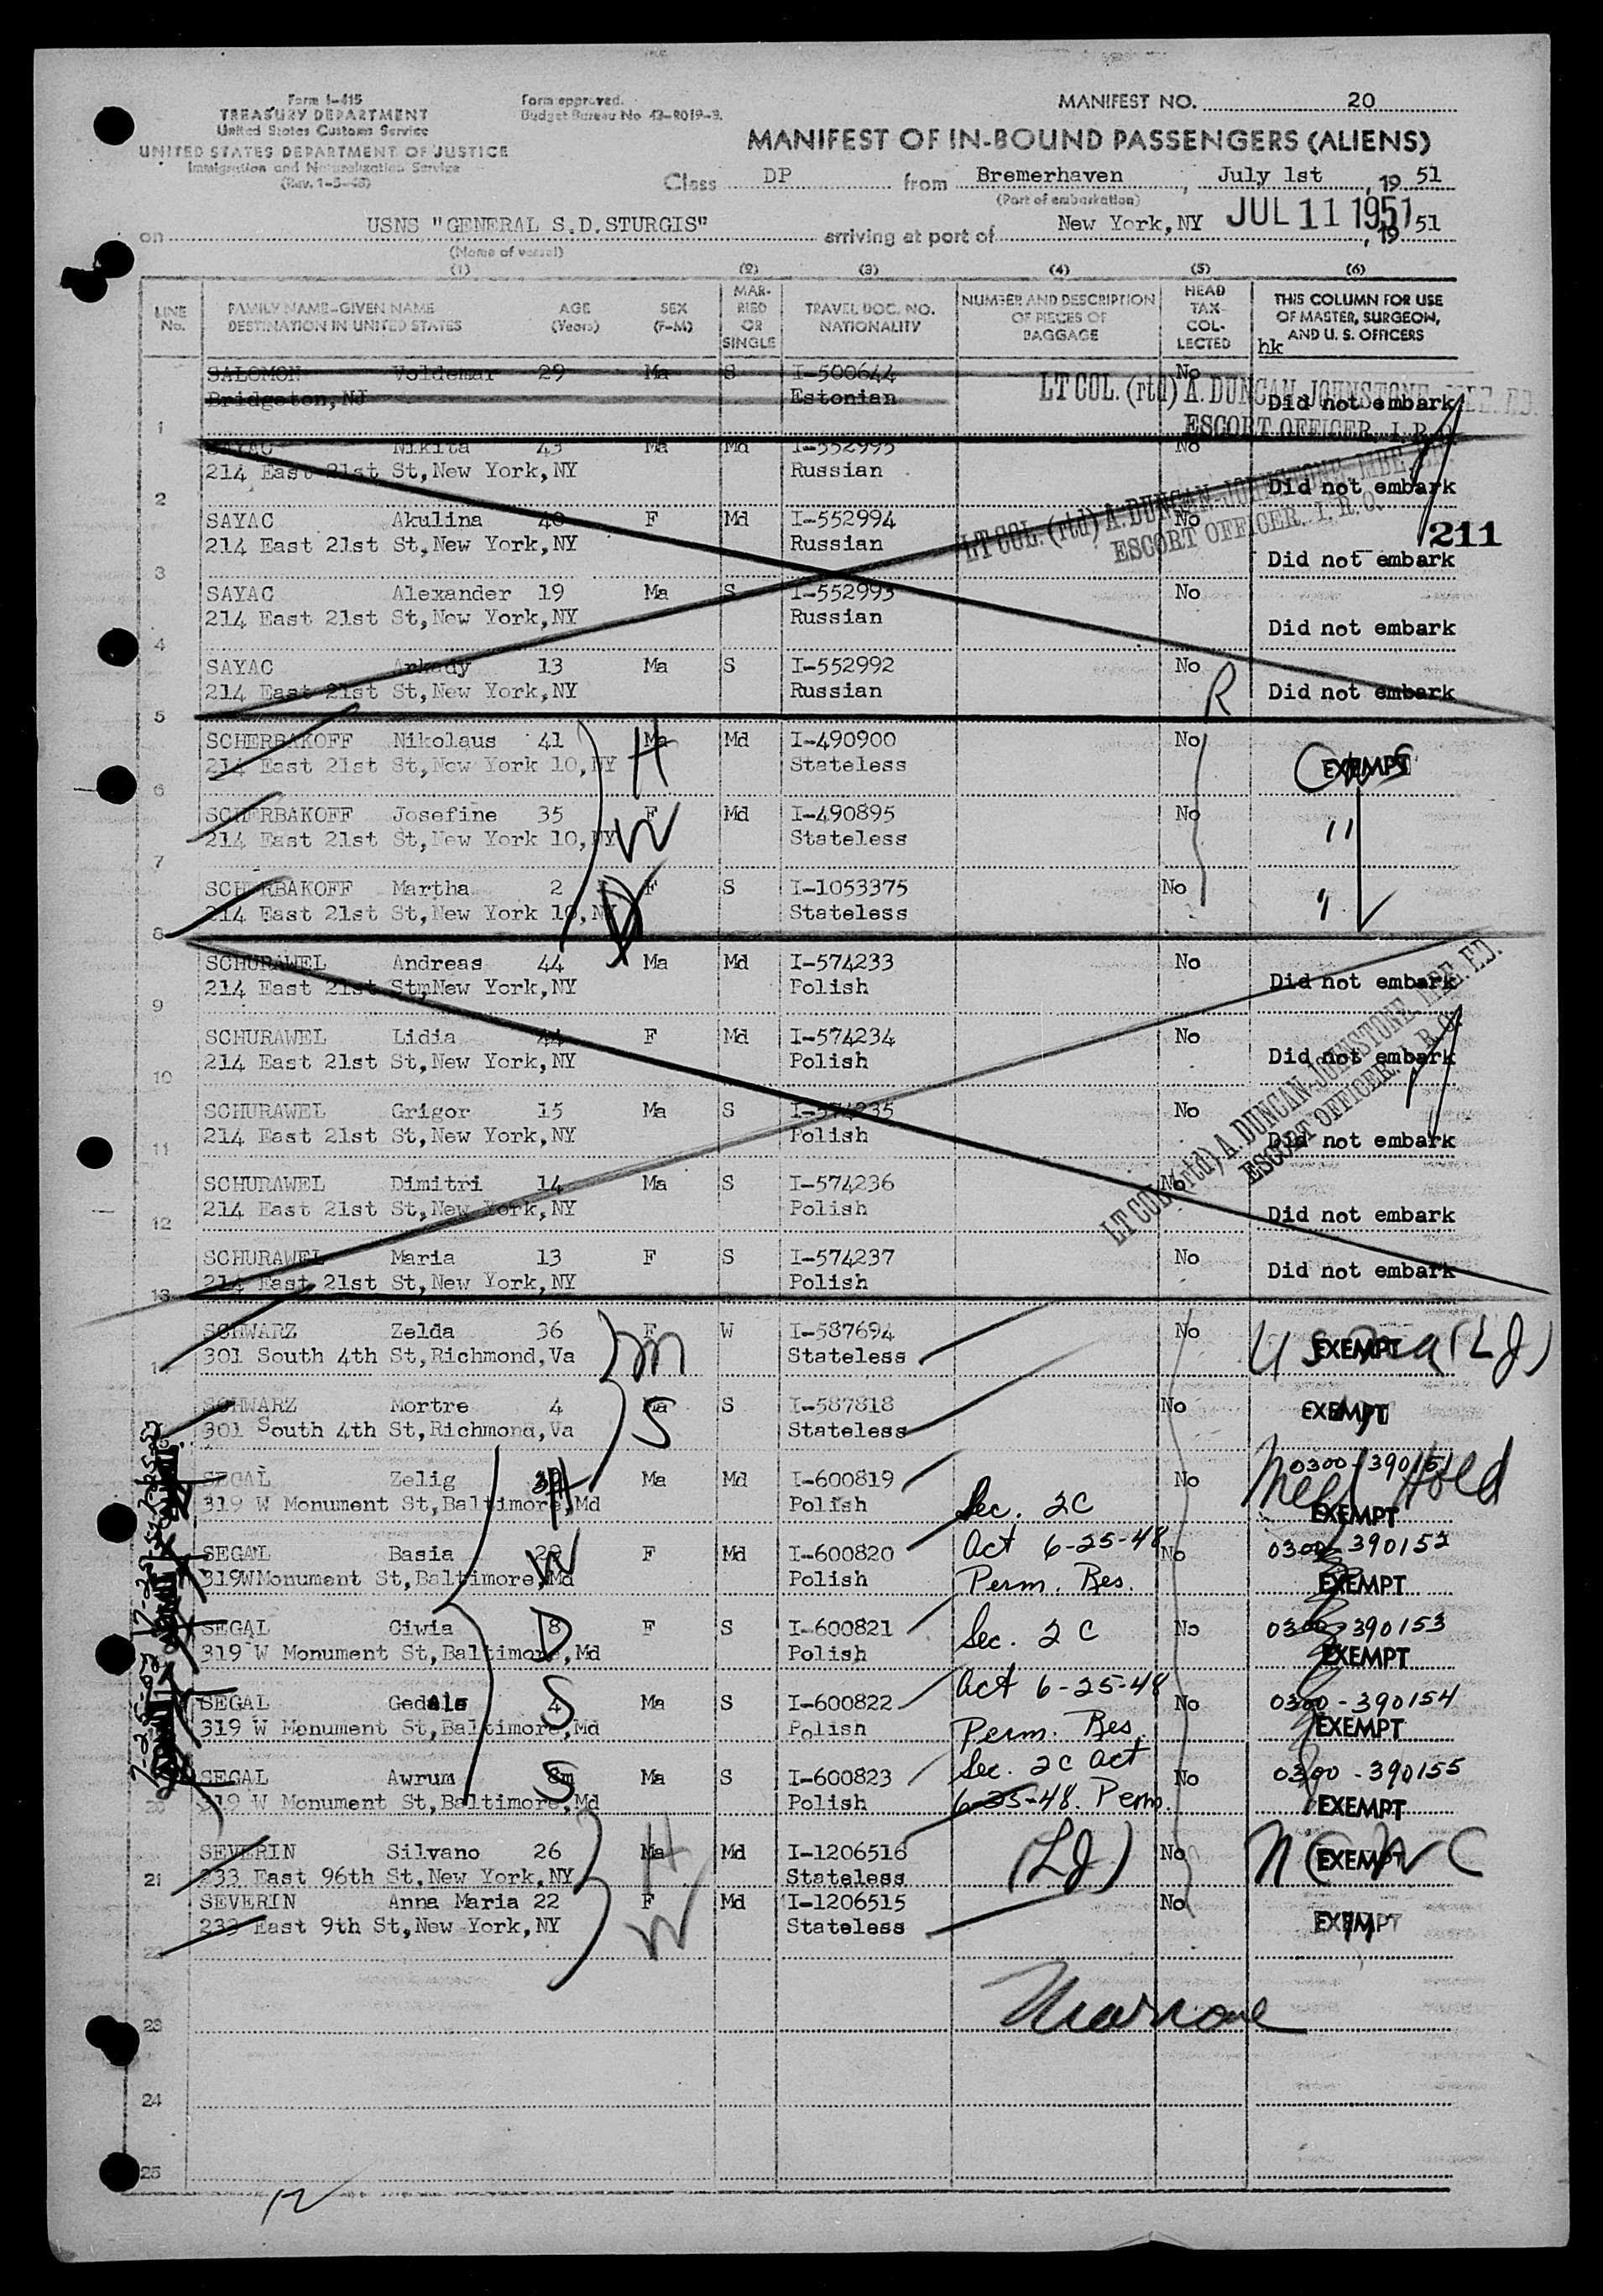 Form I-415
TREASURY DEPARTMENT
United States Customs Service
UNITED STATES DEPARTMENT OF JUSTICE
Immigration and Naturalization Service
(Rev. 1-3-48)
Form approved.
Budget Bureau No. 43-R019-3.
MANIFEST NO. 20
MANIFEST OF IN-BOUND PASSENGERS (ALIENS)
Class DP from Bremerhaven, July 1st, 19 51
(Port of embarkation)
on USNS "GENERAL S.D.STURGIS" arriving at port of New York, NY JUL 11 1951, 19 51
(Name of vessel)
(1) (2) (3) (4) (5) (6)
LINE No. FAMILY NAME-GIVEN NAME DESTINATION IN UNITED STATES AGE (Years) SEX (F-M) MARRIED OR SINGLE TRAVEL DOC. NO. NATIONALITY NUMBER AND DESCRIPTION OF PIECES OF BAGGAGE HEAD TAX COLLECTED THIS COLUMN FOR USE OF MASTER, SURGEON, AND U. S. OFFICERS
hk
SALOMON Voldemar 29 Ma S I-500644 No
LT COL. (rtd) A. DUNCAN-JOHNSTONE, MBE. ED.
Bridgeton, NJ Estonian Did not embark
ESCORT OFFICER, I. R. O.
1
SAYAC Nikita 43 Ma Md I-552995 No
214 East 21st St,New York,NY Russian Did not embark
2
LT COL. (rtd) A. DUNCAN-JOHNSTONE, MBE. ED.
ESCORT OFFICER, I. R. O.
SAYAC Akulina 40 F Md I-552994 No
211
214 East 21st St,New York,NY Russian Did not embark
3
SAYAC Alexander 19 Ma S I-552993 No
214 East 21st St,New York,NY Russian Did not embark
4
SAYAC Arkady 13 Ma S I-552992 No
214 East 21st St,New York,NY Russian R Did not embark
5
SCHERBAKOFF Nikolaus 41 Ma H Md I-490900 No
214 East 21st St,New York 10,NY Stateless EXEMPT
6
SCHERBAKOFF Josefine 35 F W Md I-490895 No
214 East 21st St,New York 10,NY Stateless "
7
SCHERBAKOFF Martha 2 F D S I-1053375 No
214 East 21st St,New York 10,NY Stateless "
8
SCHURAWEL Andreas 44 Ma Md I-574233 No
214 East 21st StmNew York,NY Polish Did not embark
9
SCHURAWEL Lidia 44 F Md I-574234 No
214 East 21st St,New York,NY Polish Did not embark
10
SCHURAWEL Grigor 15 Ma S I-574235 No
214 East 21st St,New York,NY Polish Did not embark
11
LT COL. (rtd) A. DUNCAN-JOHNSTONE, MBE. ED.
ESCORT OFFICER, I. R. O.
SCHURAWEL Dimitri 14 Ma S I-574236 No
214 East 21st St,New York,NY Polish Did not embark
12
SCHURAWEL Maria 13 F S I-574237 No
214 East 21st St,New York,NY Polish Did not embark
13
SCHWARZ Zelda 36 F W I-587694 No
301 South 4th St,Richmond,Va M Stateless EXEMPT (LJ)
SCHWARZ Mortre 4 Ma S I-587818 No EXEMPT
301 South 4th St,Richmond,Va S Stateless
0300-390151
SEGAL Zelig H Ma Md I-600819 No Med Hold
319 W Monument St,Baltimore,Md Polish Sec. 2C EXEMPT
SEGAL Basia 28 W F Md I-600820 Act 6-25-48 No 0300-390152
319WMonument St,Baltimore,Md Polish Perm. Res. EXEMPT
SEGAL Ciwia 8 D F S I-600821 Sec. 2C No 0300-390153
319 W Monument St,Baltimore,Md Polish EXEMPT
SEGAL Gedale 4 S Ma S I-600822 Act 6-25-48 No 0300-390154
319 W Monument St,Baltimore,Md Polish Perm. Res. EXEMPT
SEGAL Awrum 8m S Ma S I-600823 Sec. 2C Act No 0300-390155
319 W Monument St,Baltimore,Md Polish 6-25-48. Perm. EXEMPT
20
SEVERIN Silvano 26 Ma H Md I-1206516 (LJ) No EXEMPT
21 233 East 96th St,New York,NY Stateless
SEVERIN Anna Maria 22 F W Md I-1206515 No
233 East 9th St,New York,NY Stateless EXEMPT
22
23
24
25
12